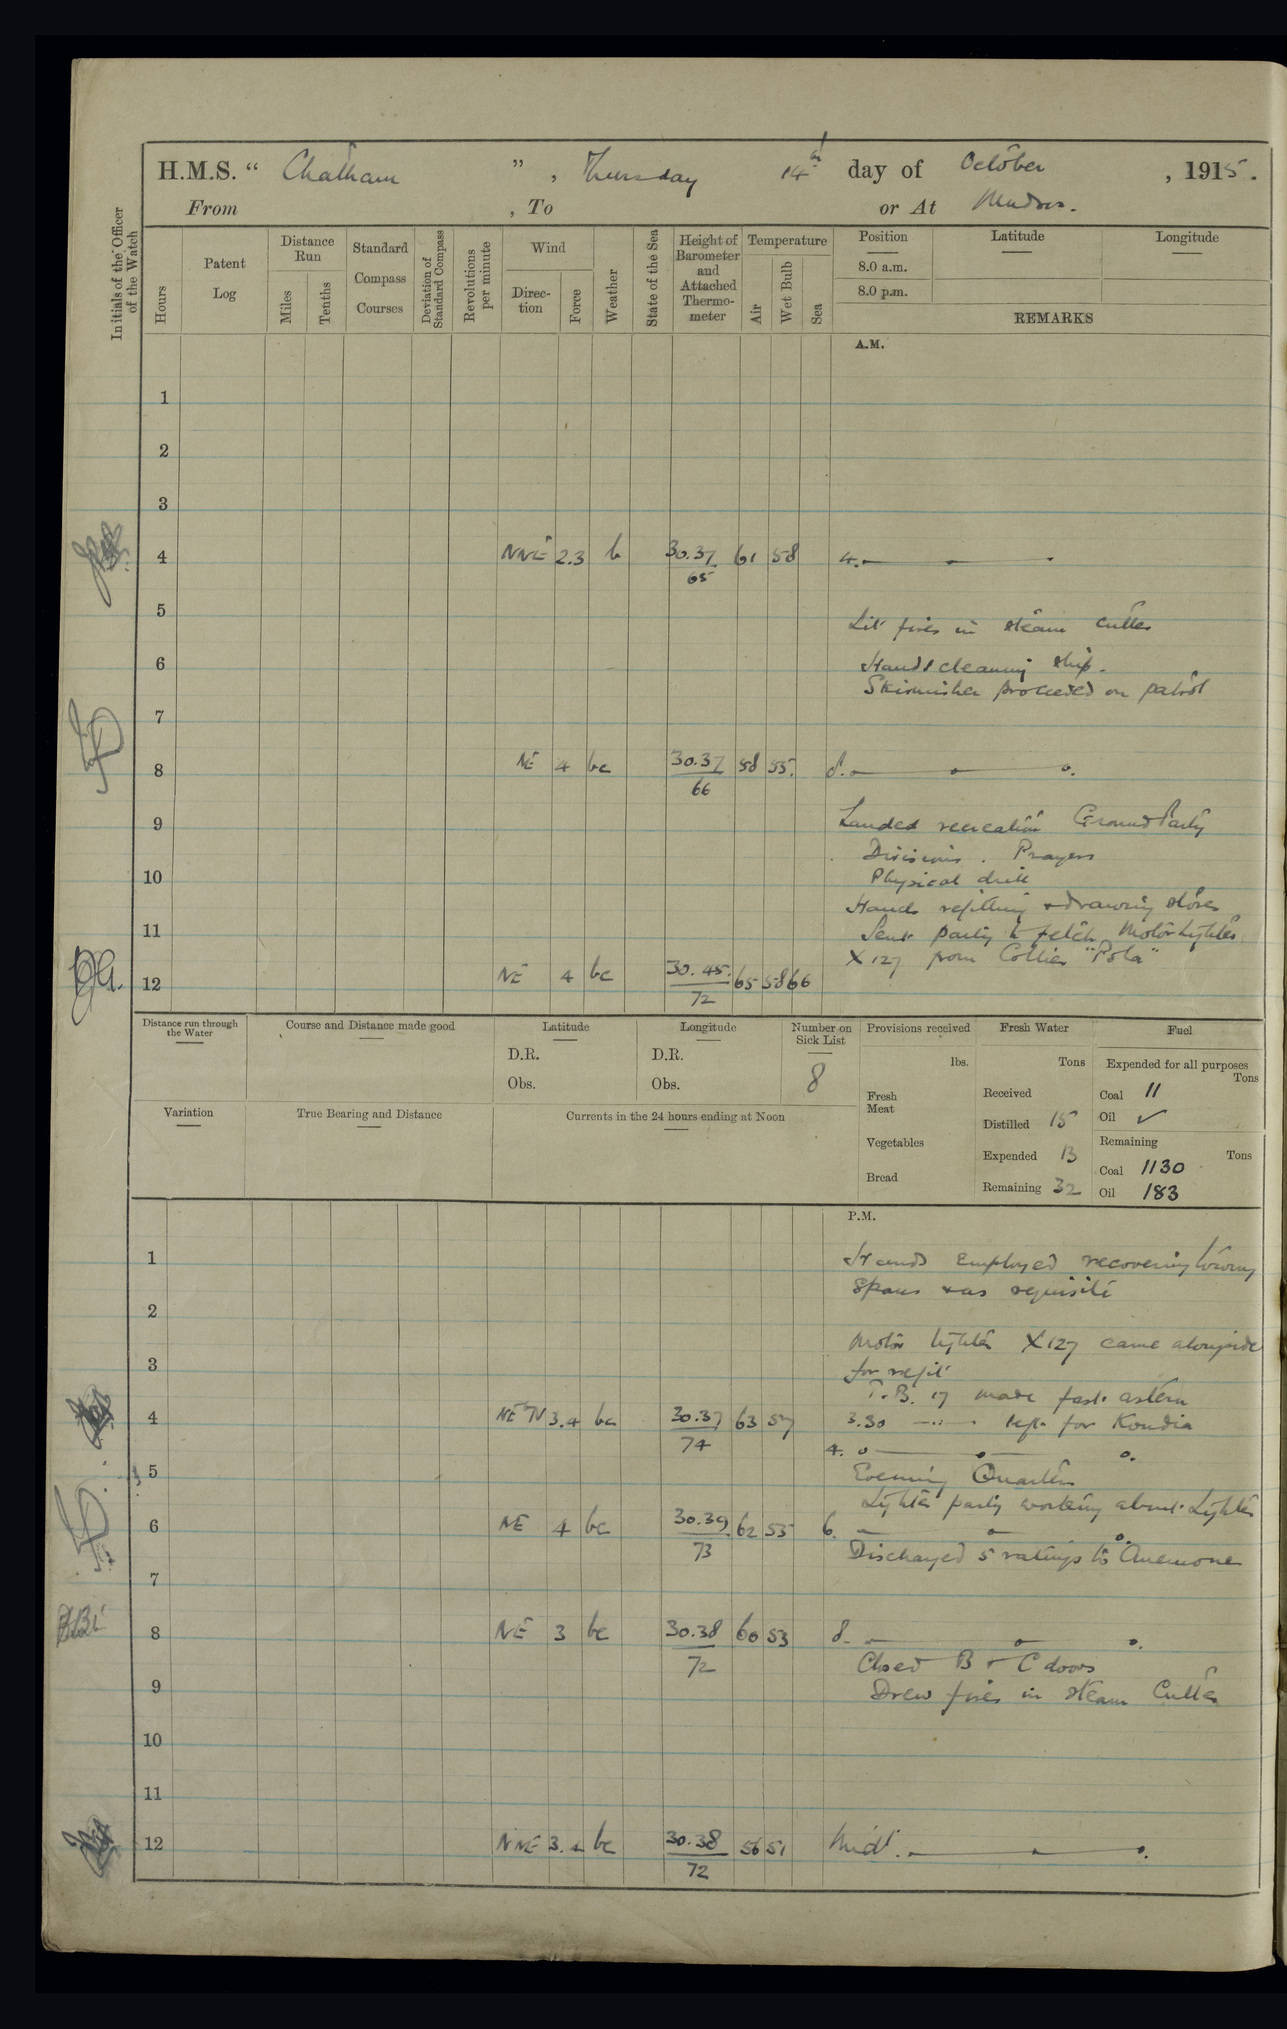 H.M.S. “ Chatham ”, Thursday 14th day of October, 1915.
From , To or At Mudros.
Initials of the Officer of the Watch
Hours
Patent Log
Distance Run
Miles
Tenths
Standard Compass Courses
Deviation of Standard Compass
Revolutions per minute
Wind
Direction
Force
Weather
State of the Sea
Height of Barometer and Attached Thermometer
Temperature
Air
Wet Bulb
Sea
Position
8.0 a.m.
8.0 p.m.
Latitude
Longitude
REMARKS
A.M.
1
2
3
4 NNE 2.3 b 30.37 65 61 58 4.
5
Lit fires in steam cutter
6
Hands cleaning ship.
Skirmisher proceeded on patrol
7
8 NE 4 bc 30.37 66 58 55 8.
9
Landed recreation Ground Party
Divisions. Prayers
10
Physical drill
Hands refitting & drawing stores
11
Sent party to fetch Motor Lighter
X127 from Collier "Pola"
12 NE 4 bc 30.45 72 65 58 66
Distance run through the Water
Course and Distance made good
Latitude
D.R.
Obs.
Longitude
D.R.
Obs.
Number on Sick List
8
Provisions received
lbs.
Fresh Meat
Vegetables
Bread
Fresh Water
Tons
Received
Distilled 15
Expended 13
Remaining 32
Fuel
Expended for all purposes
Tons
Coal 11
Oil ✓
Remaining
Tons
Coal 1130
Oil 183
Variation
True Bearing and Distance
Currents in the 24 hours ending at Noon
P.M.
1
Hands employed recovering towing
spans & as requisite
2
Motor lighter X127 came alongside
3
for refit
T.B. 17 made fast astern
4 NE'N 3.4 bc 30.37 74 63 57 3.30 left for Kondia
4.
5
Evening Quarters
Lighter party working about Lighter
6 NE 4 bc 30.39 73 62 55 6.
Discharged 5 ratings to Anemone
7
8 NE 3 bc 30.38 72 60 53 8.
Closed B & C doors
9
Drew fires in steam Cutter
10
11
12 NNE 3.4 bc 30.38 72 56 51 Midt.